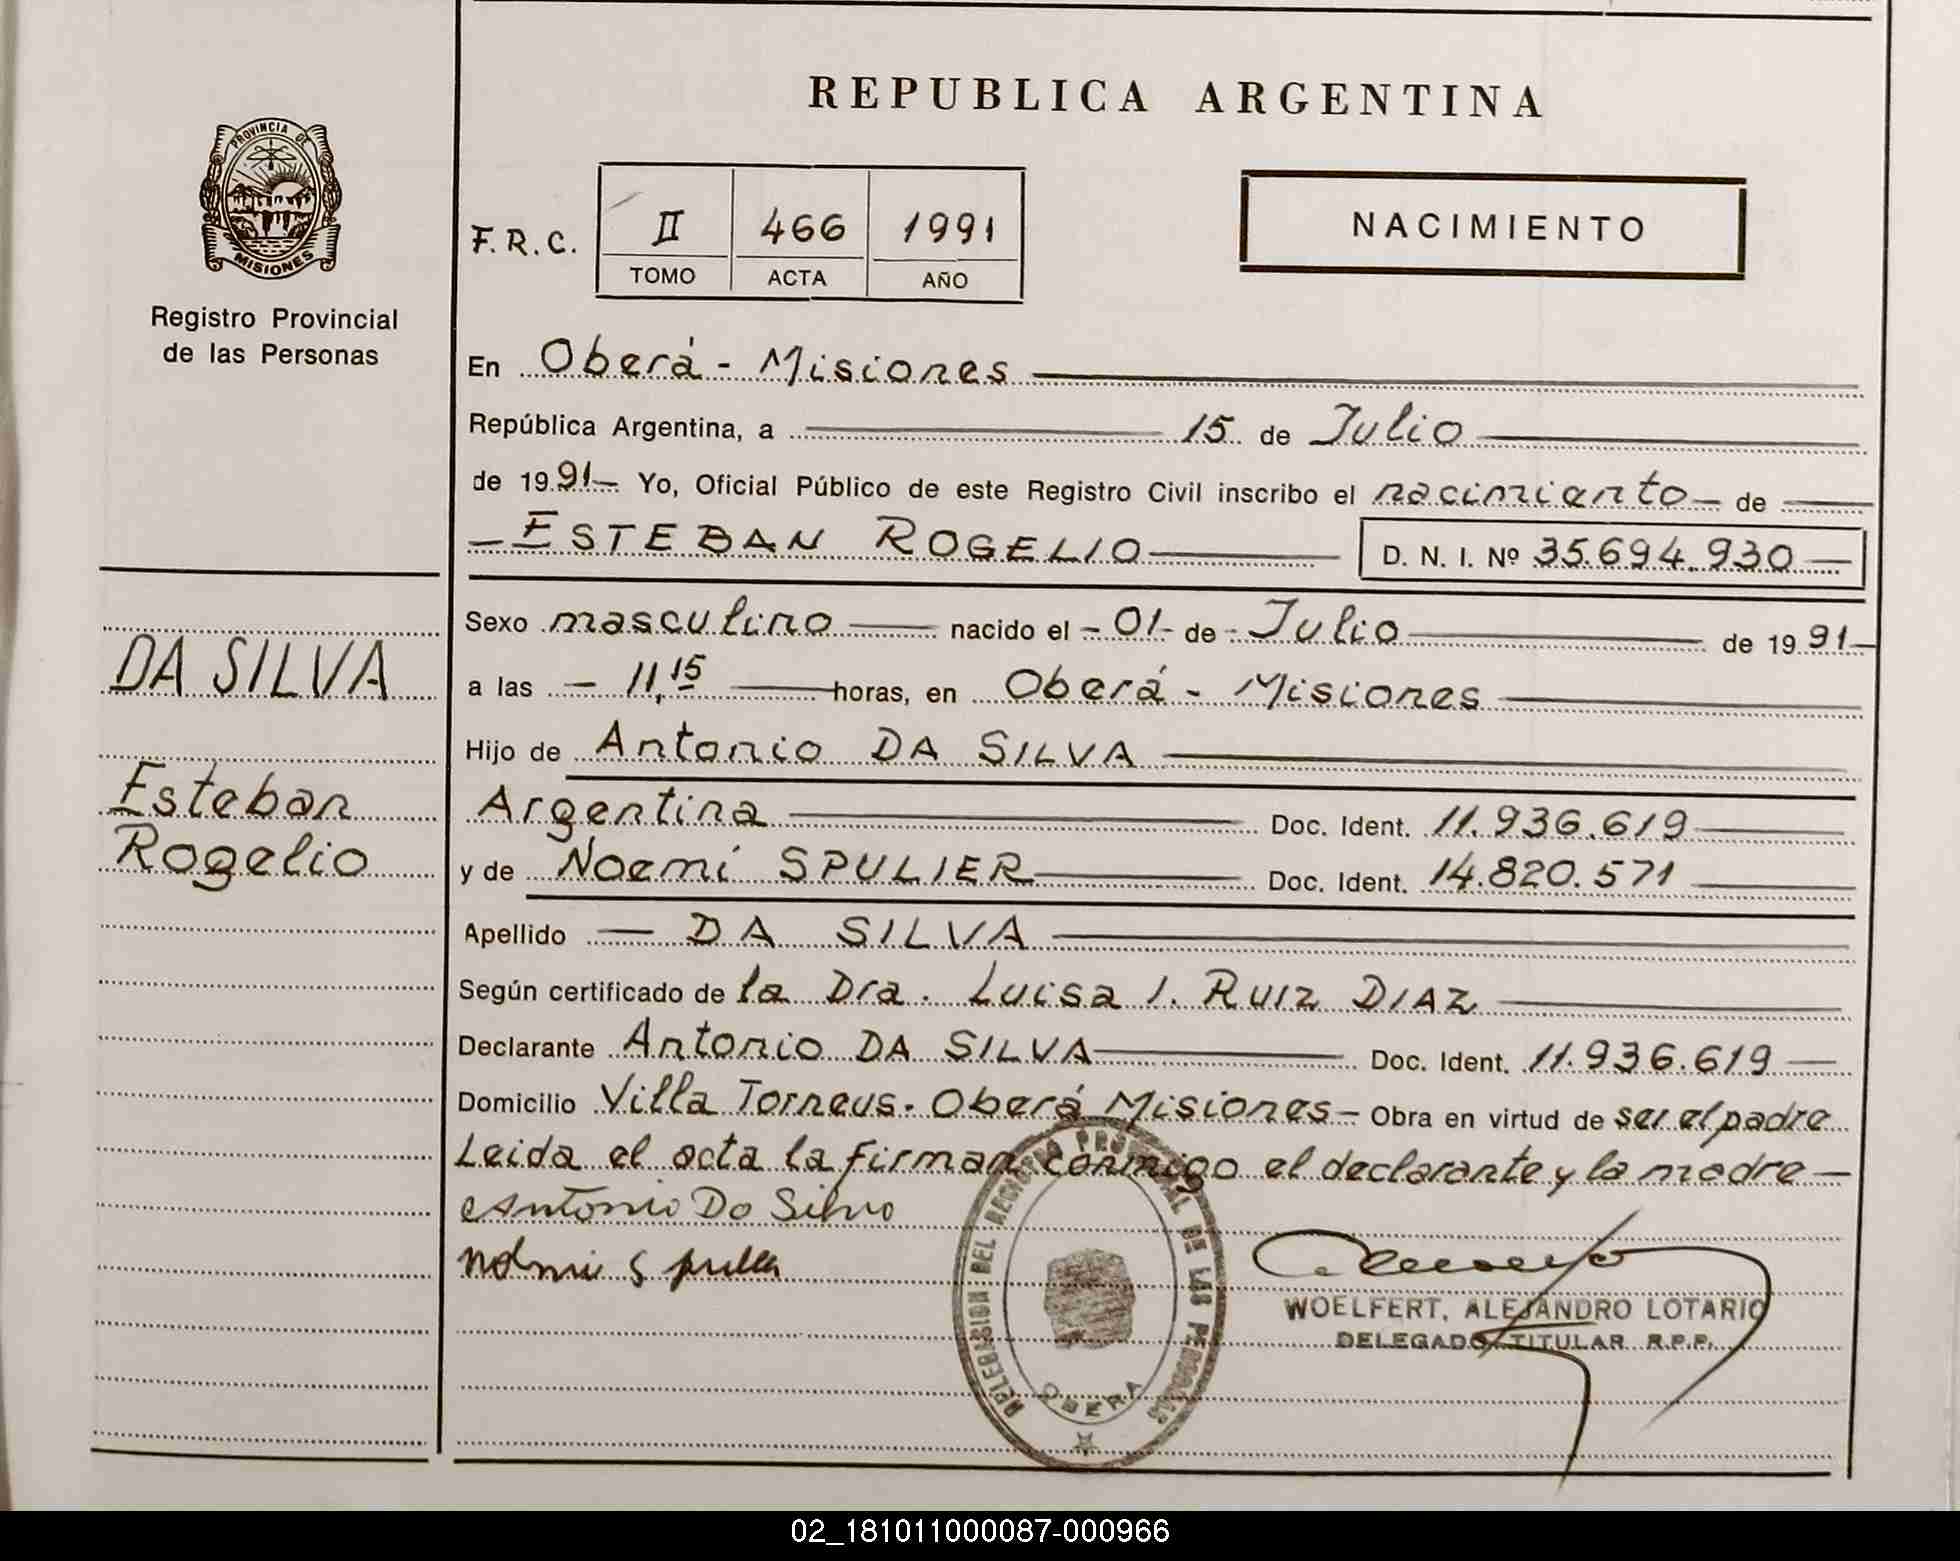 REPUBLICA ARGENTINA
PROVINCIA DE
MISIONES
Registro Provincial
de las Personas
F.R.C. II 466 1991
TOMO ACTA AÑO
NACIMIENTO
En Oberá - Misiones
República Argentina, a 15 de Julio
de 1991 Yo, Oficial Público de este Registro Civil inscribo el nacimiento de
ESTEBAN ROGELIO D. N. I. Nº 35.694.930
Sexo masculino nacido el 01 de Julio de 1991
a las 11,15 horas, en Oberá - Misiones
Hijo de Antonio DA SILVA
Argentina Doc. Ident. 11.936.619
y de Noemí SPULIER Doc. Ident. 14.820.571
Apellido DA SILVA
Según certificado de la Dra. Luisa I. RUIZ DIAZ
Declarante Antonio DA SILVA Doc. Ident. 11.936.619
Domicilio Villa Torneus - Oberá Misiones - Obra en virtud de ser el padre
Leida el acta la firman conmigo el declarante y la madre
Antonio Da Silva
DA SILVA
Esteban
Rogelio
DELEGACION DEL REGISTRO PROVINCIAL DE LAS PERSONAS
OBERA
WOELFERT, ALEJANDRO LOTARIO
DELEGADO TITULAR R.P.P.
02_181011000087-000966